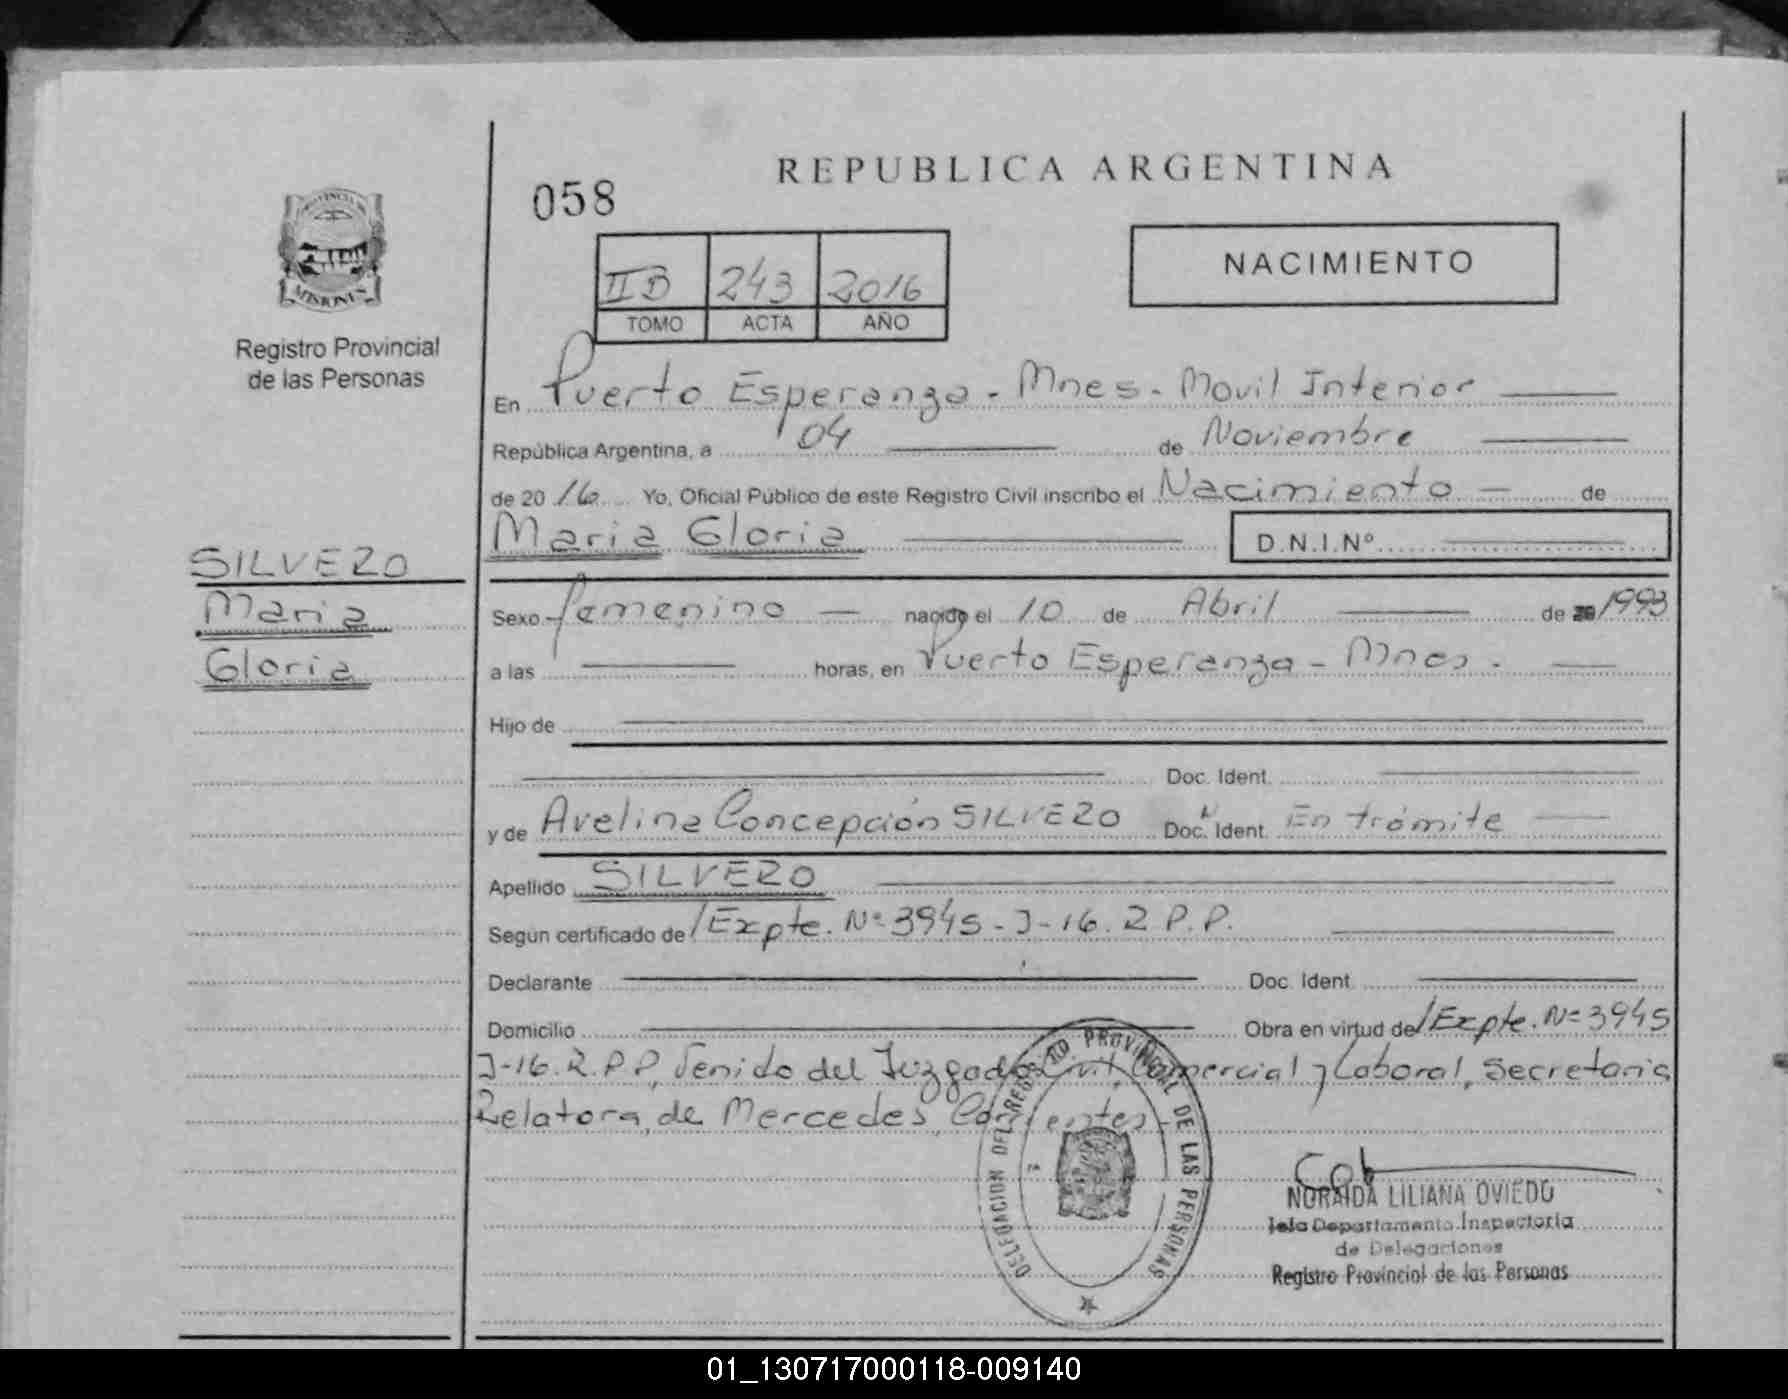 REPUBLICA ARGENTINA
058
NACIMIENTO
IIB 243 2016
TOMO ACTA AÑO
PROVINCIA DE
MISIONES
Registro Provincial
de las Personas
En Puerto Esperanza - Mnes - Movil Interior
República Argentina, a 04 de Noviembre
de 20 16 Yo, Oficial Público de este Registro Civil inscribo el Nacimiento — de
Maria Gloria D.N.I.Nº
SILVERO
Maria
Gloria
Sexo femenino — nacido el 10 de Abril de 1993
a las horas, en Puerto Esperanza - Mnes.
Hijo de
Doc. Ident.
y de Avelina Concepción SILVERO Doc. Ident. En trámite
Apellido SILVERO
Según certificado de /Expte. Nº 3945 - J - 16. R P. P.
Declarante Doc. Ident.
Domicilio Obra en virtud de /Expte. Nº 3945
J-16. R. P. P, Venido del Juzgado Civil, Comercial y Laboral, Secretaria
Relatora, de Mercedes, Corrientes
DELEGACION DEL REGISTRO PROVINCIAL DE LAS PERSONAS
NORAIDA LILIANA OVIEDO
Jefa Departamento Inspectoria
de Delegaciones
Registro Provincial de las Personas
01_130717000118-009140